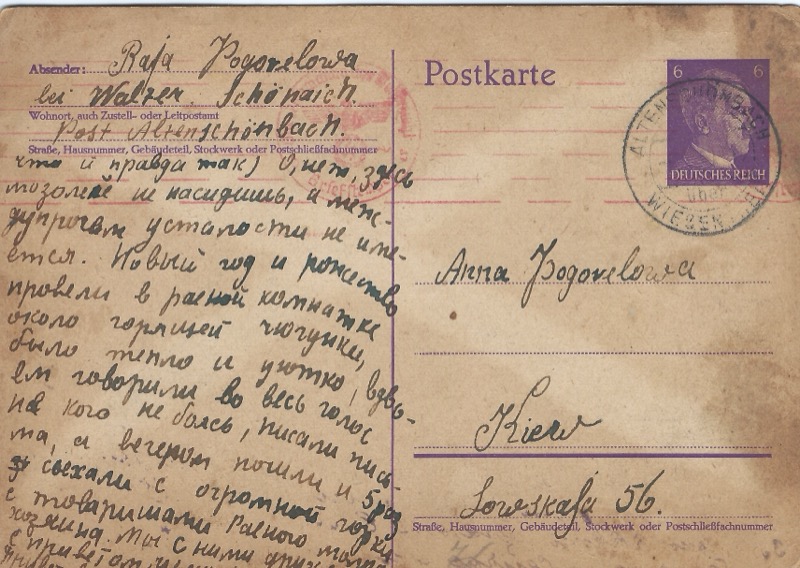 Absender: Raja Pogorelowa
bei Walter Schönaich.
Wohnort, auch Zustell- oder Leitpostamt
Post Altenschönbach.
Straße, Hausnummer, Gebäudeteil, Stockwerk oder Postschließfachnummer
что и правда так) О, нет, здесь
мозолей не насидишь, а меж-
дупрочем усталости не име-
ется. Новый год и рожество
провели в раеной комнатке
около горящей чюгунки,
было тепло и уютно, вдво-
ем говорили во весь голос
на кого не боясь, писали пись-
ма, а вечером пошли и 5 раз
съехали с огромной горки
с товарищами Раеного
хозяина. Мы с ними
с приветом
Postkarte
6 6
DEUTSCHES REICH
ALTEN
über
WIESEN
Anna Pogorelowa
Kiew
Lowskaja 56.
Straße, Hausnummer, Gebäudeteil, Stockwerk oder Postschließfachnummer